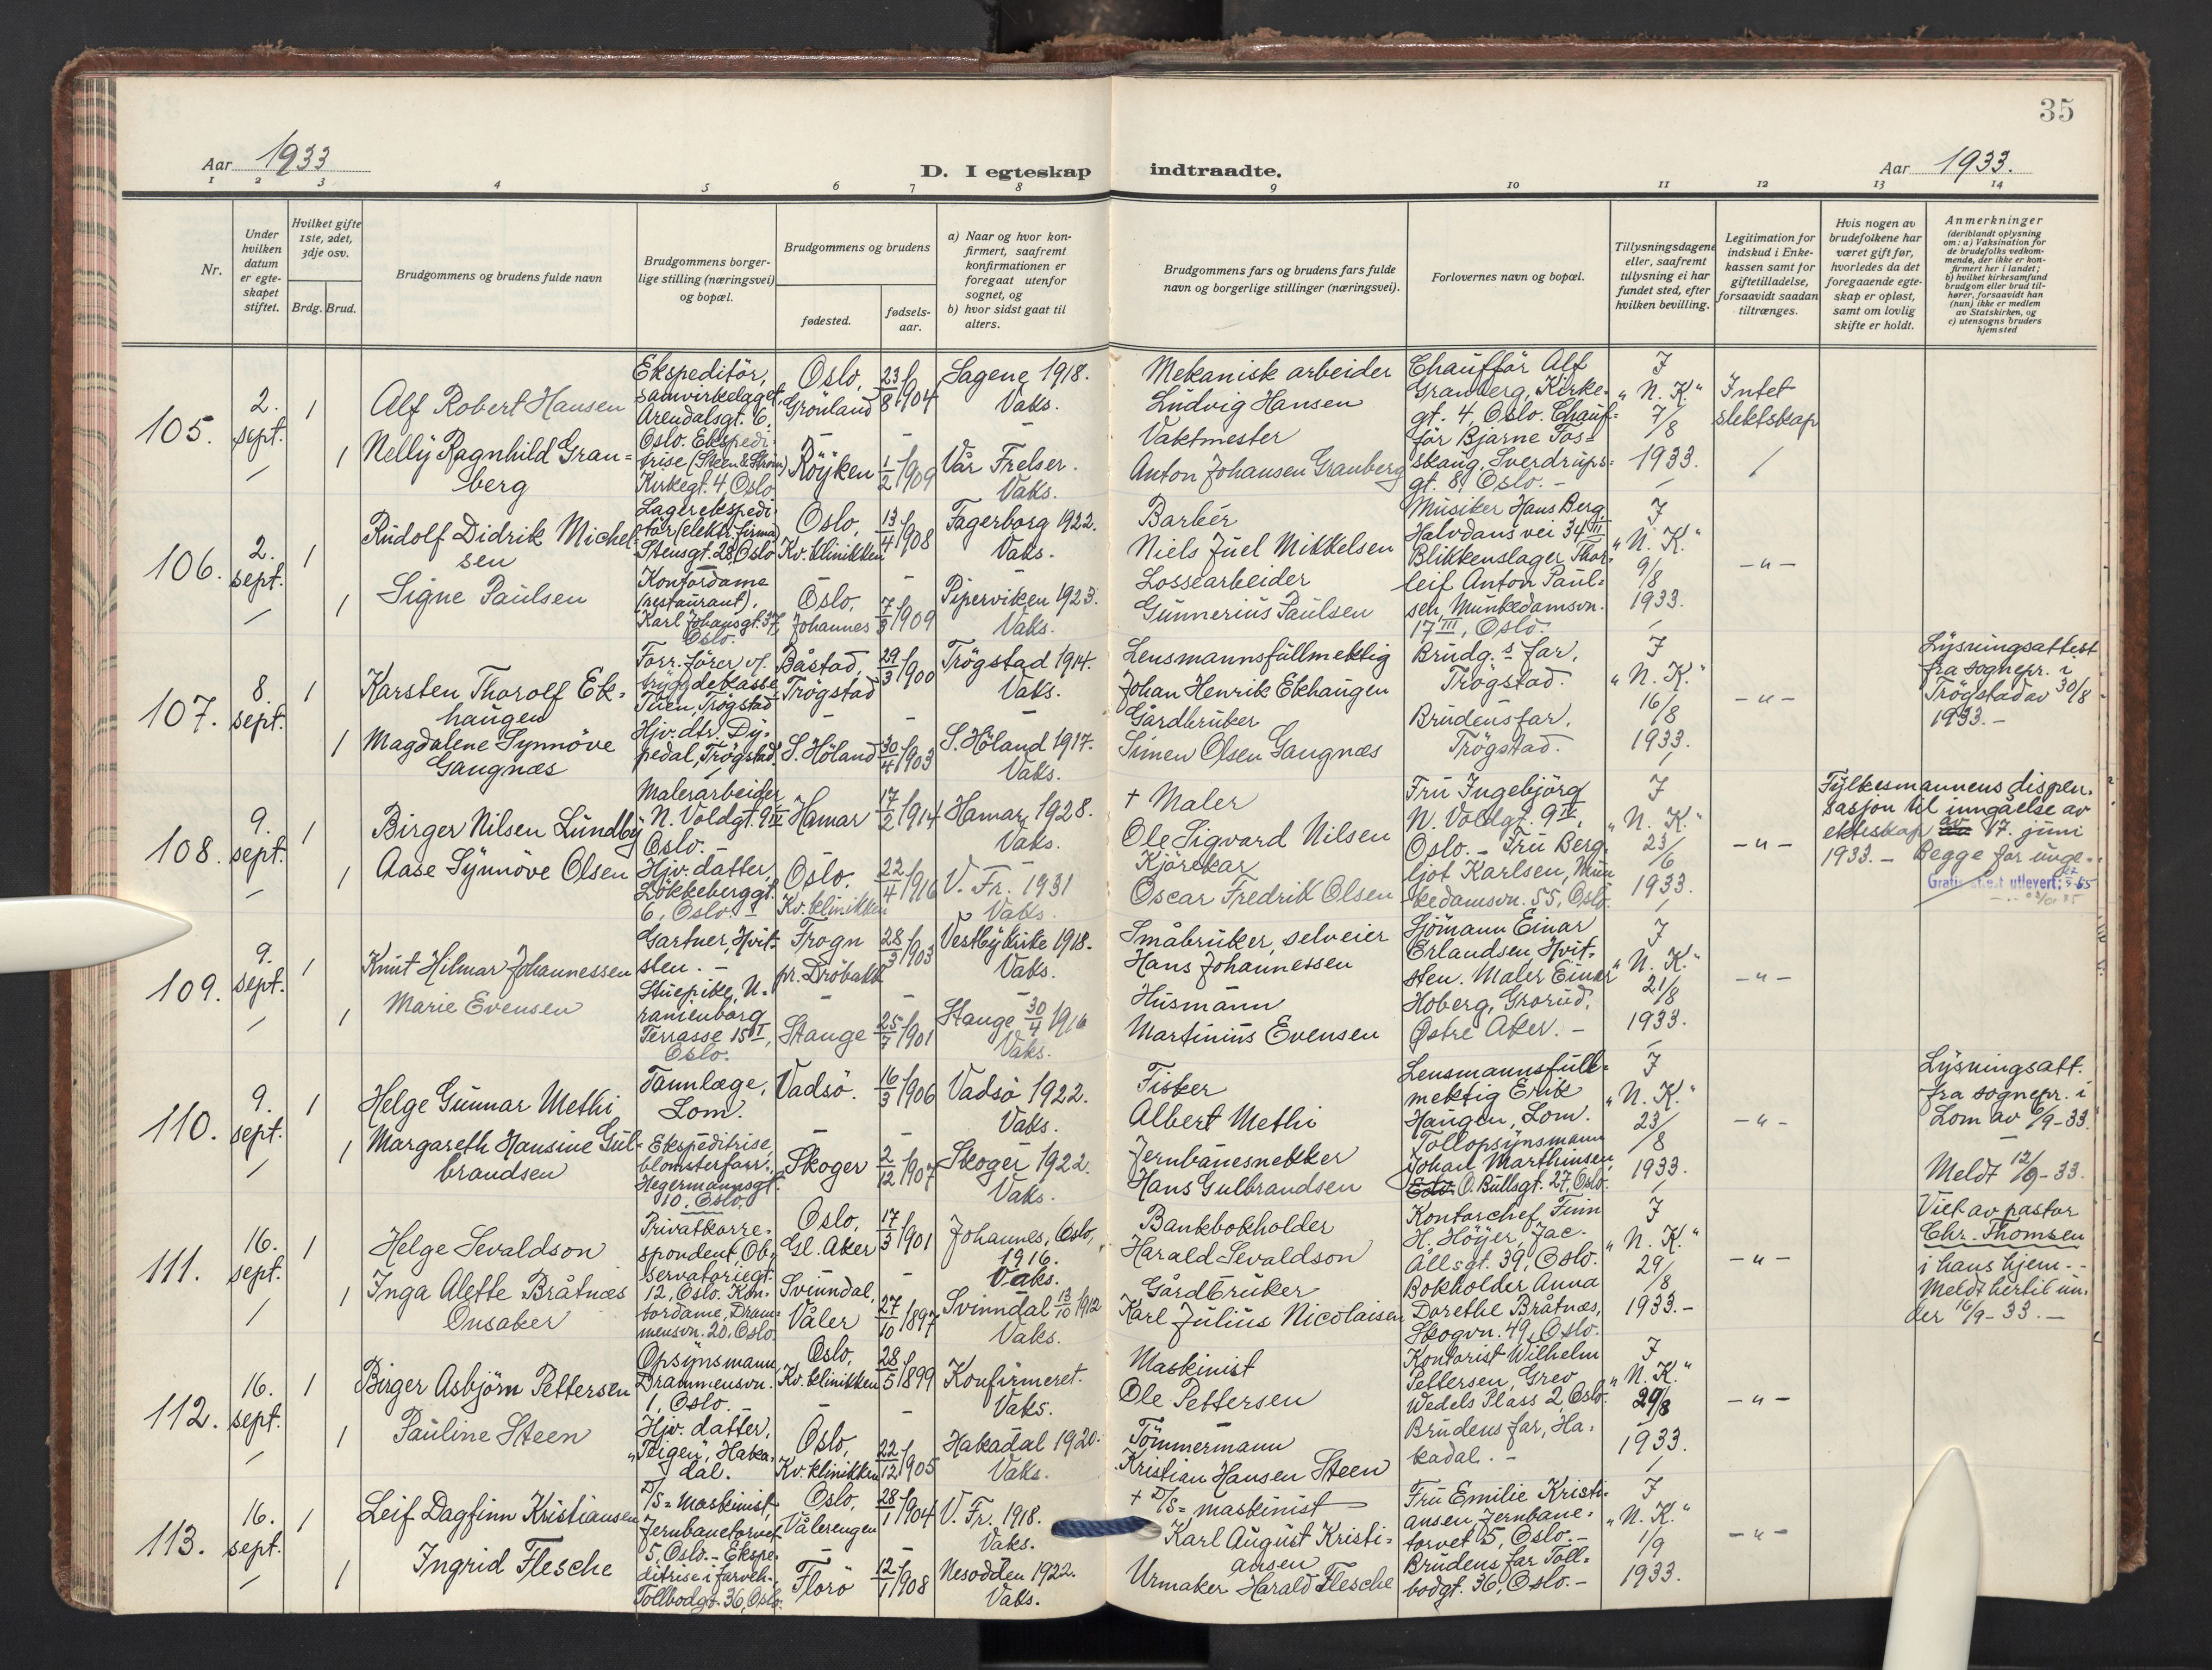 35
Aar 1933
D. I egteskap indtraadte.
Aar 1933.
1 2 3 4 5 6 7 8 9 10 11 12 13 14
Nr.
Under hvilken datum er egte-skapet stiftet.
Hvilket gifte 1ste, 2det, 3dje osv.
Brdg. Brud.
Brudgommens og brudens fulde navn
Brudgommens borger-lige stilling (næringsvei) og bopæl.
Brudgommens og brudens
fødested.
fødsels-aar.
a) Naar og hvor kon-firmert, saafremt konfirmationen er foregaat utenfor sognet, og
b) hvor sidst gaat til alters.
Brudgommens fars og brudens fars fulde navn og borgerlige stillinger (næringsvei).
Forlovernes navn og bopæl.
Tillysningsdagene eller, saafremt tillysning ei har fundet sted, efter hvilken bevilling.
Legitimation for indskud i Enke-kassen samt for giftetilladelse, forsaavidt saadan tiltrænges.
Hvis nogen av brudefolkene har været gift før, hvorledes da det foregaaende egte-skap er opløst, samt om lovlig skifte er holdt.
Anmerkninger (deriblandt oplysning om: a) Vaksination for de brudefolks vedkom-mende, der ikke er kon-firmert her i landet; b) hvilket kirkesamfund brudgom eller brud til-hører, forsaavidt han (hun) ikke er medlem av Statskirken, og c) utensogns bruders hjemsted
105.
2. sept.
1
Alf Robert Hansen
Ekspeditör, samvirkelaget, Arendalsgt. 6, Oslo.
Oslo, Grönland
23/8 1904
Sagene 1918. Vaks.
Mekanisk arbeider Ludvig Hansen
Chaufför Alf Granberg, Kirke-gt. 4, Oslo. Chauf-för Bjarne Fos-skaug, Sverdrups-gt. 8, Oslo. -
I "N. K." 7/8 1933.
Intet slektskap
1
Nelly Ragnhild Gran=berg
Ekspedi-trise (Steen & Ström) Kirkegt. 4 Oslo.
Röyken
1/2 1909
Vår Frelser. Vaks.
Vaktmester Anton Johansen Granberg
106.
2. sept.
1
Rudolf Didrik Michel-sen
Lagerekspedi-tör (elektr. firma) Stensgt. 28, Oslo
Oslo, Kv. klinikken
13/4 1908
Fagerborg 1922. Vaks.
Barbér Niels Juel Mikkelsen
Musiker Hans Berg, Halvdans vei 34 III Blikkenslager Thor-leif Anton Paul-sen, Munkedamsvn. 17 III, Oslo.
I "N. K." 9/8 1933.
- " -
1
Signe Paulsen
Kontordame (restaurant), Karl Johansgt. 37, Oslo.
Oslo, Johannes
7/3 1909
Piperviken 1923. Vaks.
Lossearbeider Gunnerius Paulsen
107.
8. sept.
1
Karsten Thorolf Ek-haugen
Forr. förer v/ trygdekasse Tuen, Trögstad
Båstad, Trögstad
29/3 1900
Trögstad 1914. Vaks.
Lensmannsfullmektig Johan Henrik Ekhaugen
Brudg.s far, Trögstad.
I "N. K." 16/8 1933.
- " -
Lysningsattest fra sognepr. i Trögstad av 30/8 1933. -
1
Magdalene Synnöve Gangnæs
Hjv. dtr. Dy-pedal, Trögstad.
S. Höland
30/4 1903
S. Höland 1917. Vaks.
Gårdbruker Simen Olsen Gangnæs
Brudens far, Trögstad.
108.
9. sept.
1
Birger Nilsen Lundby
Malerarbeider N. Voldgt. 9 IV Oslo.
Hamar
17/2 1914
Hamar, 1928. Vaks.
+ Maler Ole Sigvard Nilsen
Fru Ingebjörg N. Voldgt. 9 IV, Oslo. - Fru Berg-ljot Karlsen, Mun-kedamsvn. 55, Oslo.
I "N. K." 23/6 1933.
- " -
Fylkesmannens dispen-sasjon til inngåelse av ekteskap av 17. juni 1933. - Begge for unge. -
Gratis attest utlevert: 27/9-55
1
Aase Synnöve Olsen
Hjv. datter, Lökkeberggt. 6, Oslo.
Oslo, Kv. klinikken
22/4 1916
V. Fr. 1931 Vaks.
Kjörekar Oscar Fredrik Olsen
109.
9. sept.
1
Knut Hilmar Johannessen
Gartner, Hvit-sten. -
Frogn pr. Dröbakk
28/3 1903
Vestby kirke 1918. Vaks.
Småbruker, selveier Hans Johannessen
Sjömann Einar Erlandsen, Hvit-sten. Maler Einar Hoberg, Grorud, Östre Aker. -
I "N. K." 21/8 1933.
- " -
1
Marie Evensen
Stuepike, U-ranienborg Terrasse 15 I, Oslo.
Stange
25/7 1901
Stange 30/4 1916 Vaks.
Husmann Martinius Evensen
110.
9. sept.
1
Helge Gunnar Methi
Tannlæge, Lom.
Vadsö.
16/3 1906
Vadsö 1922. Vaks.
Fisker Albert Methi
Lensmannsfull-mektig Erik Haugen, Lom. Tollopsynsmann Johan Marthinsen, O. Bullsgt. 27, Oslo.
I "N. K." 23/8 1933.
- " -
Lysningsatt. fra sognepr. i Lom av 6/9-33.
Meldt 12/9-33.
1
Margareth Hansine Gul-brandsen
Ekspeditrise, blomsterforr., Hegermannsgt. 10, Oslo.
Skoger
2/12 1907
Skoger 1922. Vaks.
Jernbanesnekker Hans Gulbrandsen
111.
16. sept.
1
Helge Sevaldson
Privatkorre-spondent, Ob-servatoriegt. 12, Oslo.
Oslo, Gl. Aker
17/3 1901
Johannes, Oslo, 1916. Vaks.
Bankbokholder Harald Sevaldson
Kontorchef Finn H. Höyer, Jac. Allsgt. 39, Oslo. Bokholder Anna Dorethe Bråtnæs, Skogvn. 49, Oslo.
I "N. K." 29/8 1933. -
- " -
Viet av pastor Chr. Thomsen i hans hjem. - Meldt hertil un-der 16/9-33. -
1
Inga Alette Bråtnæs Onsaker
Kon-tordame, Dram-mensvn. 20, Oslo.
Svinndal, Våler
27/10 1897
Svinndal 13/10 1912 Vaks.
Gårdbruker Karl Julius Nicolaisen
112.
16. sept.
1
Birger Asbjörn Pettersen
Opsynsmann Drammensvn. 1, Oslo. -
Oslo, Kv. klinikken
28/5 1899
Konfirmeret. Vaks.
Maskinist Ole Pettersen
Kontorist Wilhelm Pettersen, Grev Wedels Plass 2, Oslo. Brudens far, Ha-kadal. -
I "N. K." 29/8 1933.
- " -
1
Pauline Steen
Hjv. datter, "Teigen", Haka-dal.
Oslo, Kv. klinikken
22/12 1905
Hakadal 1920. Vaks.
Tömmermann Kristian Hansen Steen
113.
16. sept.
1
Leif Dagfinn Kristiansen
D/S= maskinist, Jernbanetorvet 5, Oslo. -
Oslo, Vålerengen
28/1 1904
V. Fr. 1918. Vaks.
+ D/S= maskinist Karl August Kristi=ansen
Fru Emilie Kristi-ansen, Jernbane-torvet 5, Oslo. - Brudens far Toll-bodgt. 36, Oslo. -
I "N. K." 1/9 1933.
- " -
1
Ingrid Flesche
Ekspe-ditrise i farveh., Tollbodgt. 36, Oslo.
Florö
12/1 1908
Nesodden 1922. Vaks.
Urmaker Harald Flesche